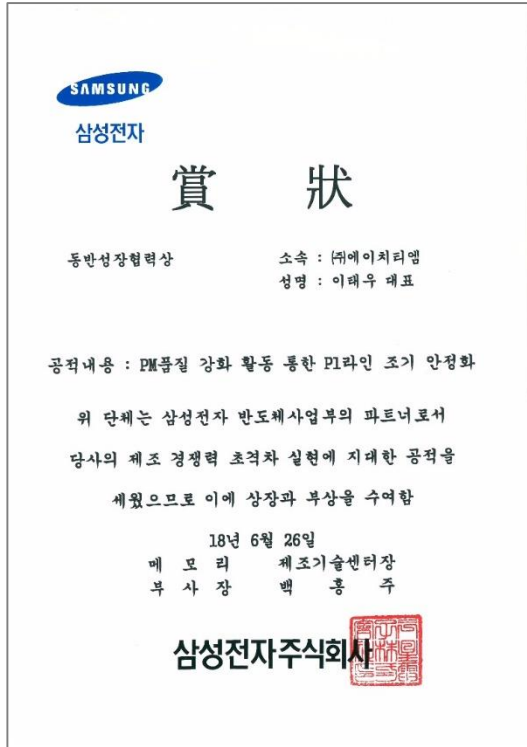 SAMSUNG
삼성전자
賞 狀
동반성장협력상
소속 : ㈜에이치티엠
성명 : 이태우 대표
공적내용 : PM품질 강화 활동 통한 P1라인 조기 안정화
위 단체는 삼성전자 반도체사업부의 파트너로서
당사의 제조 경쟁력 초격차 실현에 지대한 공적을
세웠으므로 이에 상장과 부상을 수여함
18년 6월 26일
메 모 리 제조기술센터장
부 사 장 백 홍 주
삼성전자주식회사